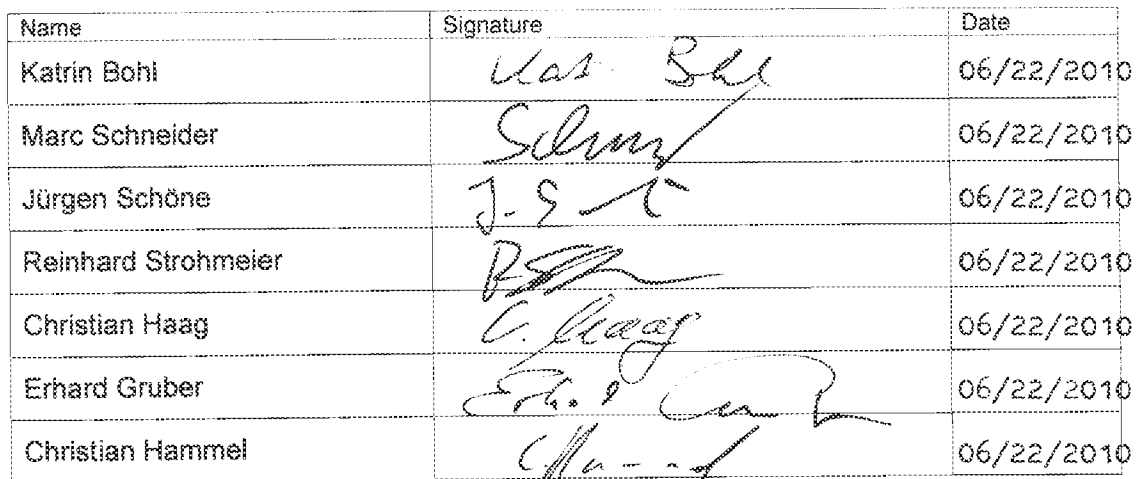 Name Signature Date
Katrin Bohl Kat Bohl 06/22/2010
Marc Schneider 06/22/2010
Jürgen Schöne 06/22/2010
Reinhard Strohmeier 06/22/2010
Christian Haag C. Haag 06/22/2010
Erhard Gruber 06/22/2010
Christian Hammel 06/22/2010